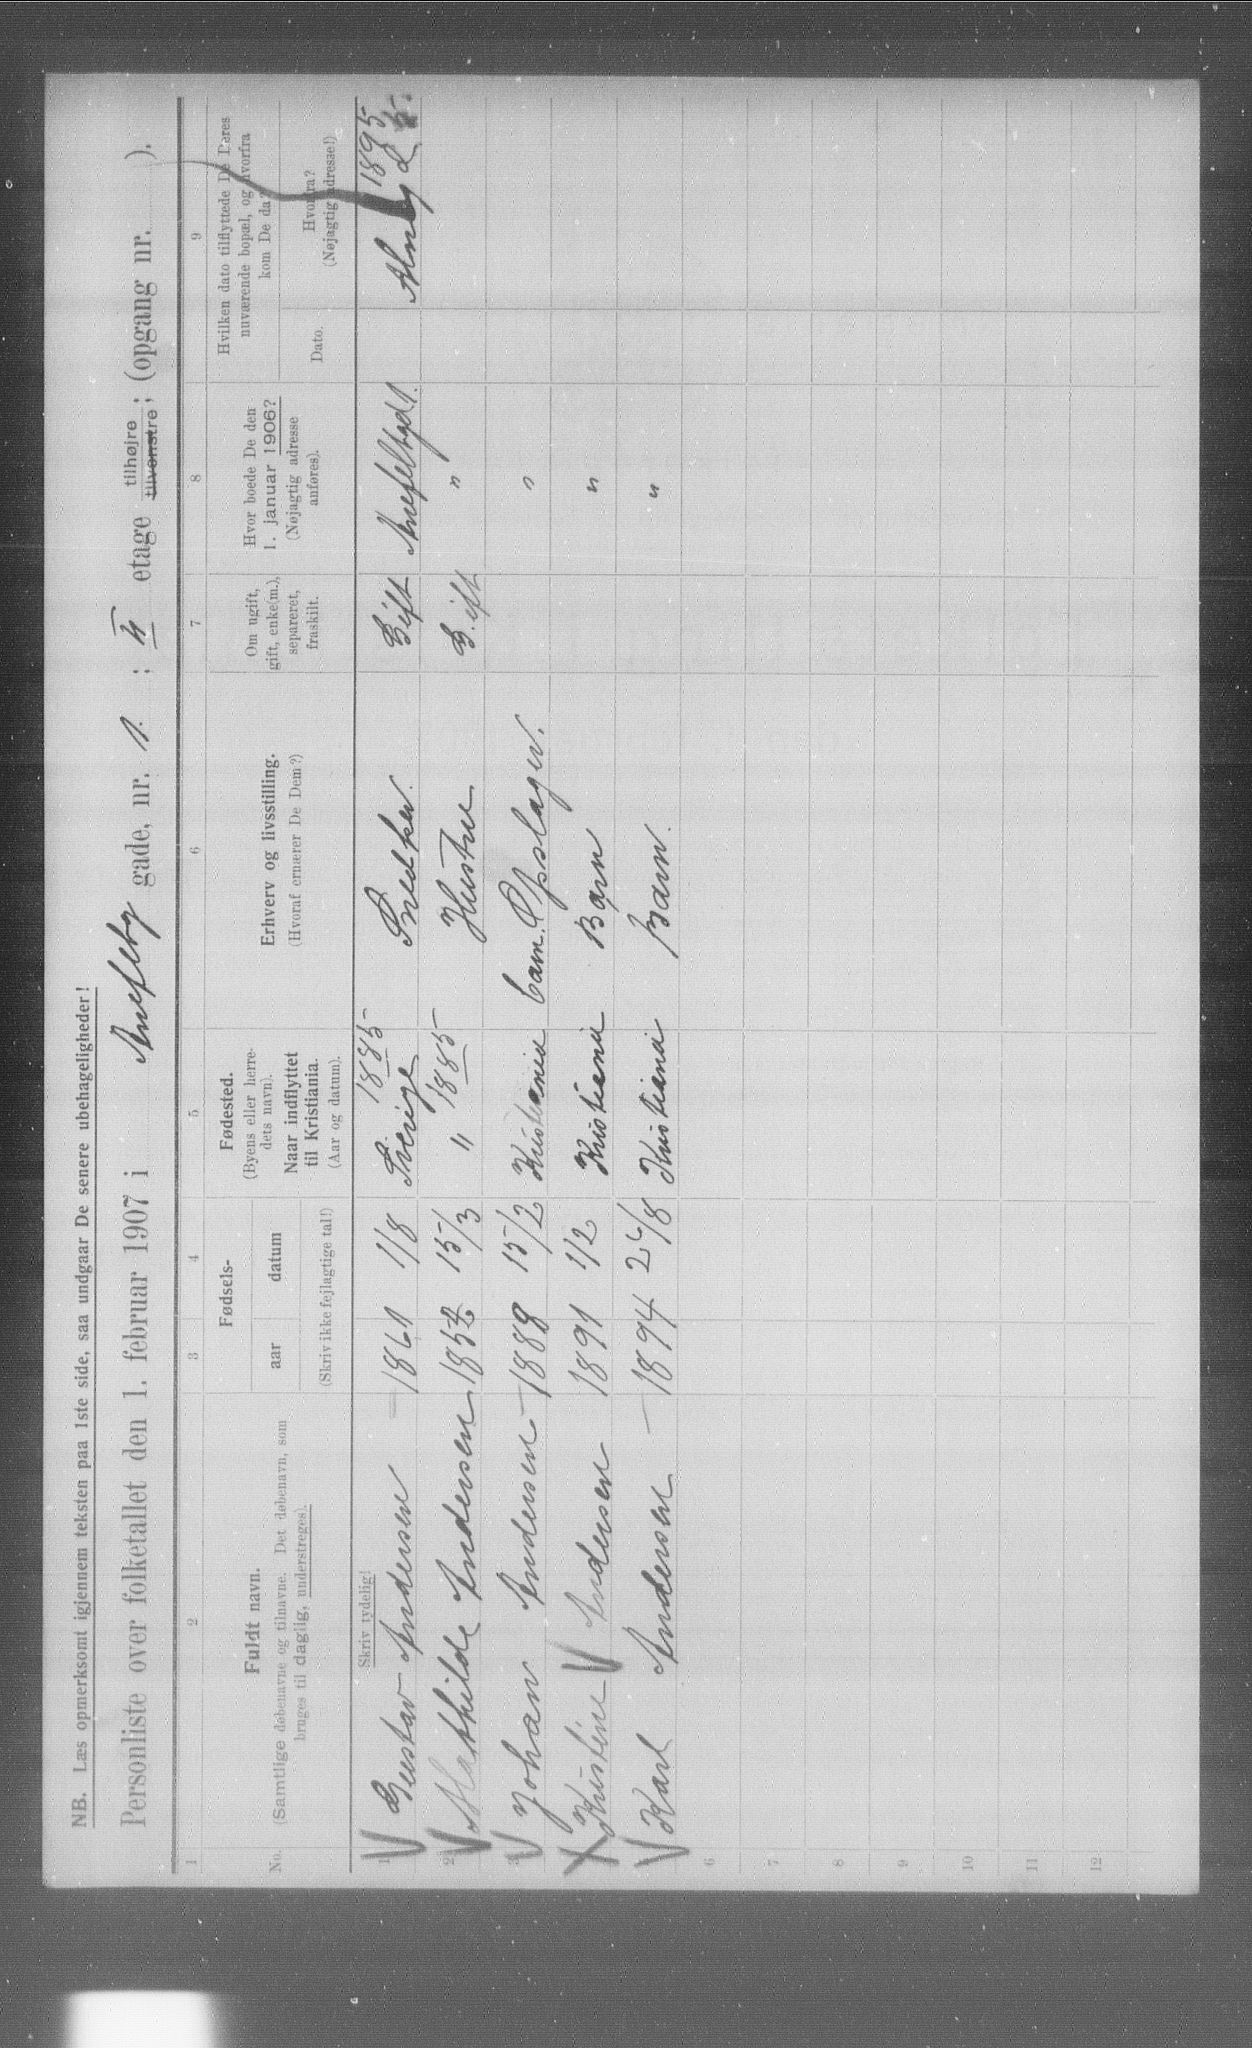 NB. Læs opmerksomt igjennem teksten paa 1ste side, saa undgaar De senere ubehageligheder!
Personliste over folketallet den 1. februar 1907 i Snefeby gade, nr. 1. ; II etage tilhøjre tilvenstre ; (opgang nr. ).
1 2 3 4 5 6 7 8 9
No. Fuldt navn. (Samtlige døbenavne og tilnavne. Det døbenavn, som bruges til daglig, understreges).
Fødsels- aar datum (Skriv ikke fejlagtige tal!)
Fødested. (Byens eller herredets navn). Naar indflyttet til Kristiania. (Aar og datum).
Erhverv og livsstilling. (Hvoraf ernærer De Dem?)
Om ugift, gift, enke(m.), separeret, fraskilt.
Hvor boede De den 1. januar 1906? (Nøjagtig adresse anføres).
Hvilken dato tilflyttede De Deres nuværende bopæl, og hvorfra kom De da?
Dato. Hvorfra? (Nøjagtig adresse!)
Skriv tydelig!
1 Gustav Andersen 1861 1/8 Sverige 1885 Snedker. Gift 1895
2 Mathilde Andersen 1852 15/3 " 1885 Hustru Gift "
3 Johan Andersen 1888 15/2 Kristiania barn. Opslager. "
4 Kristine Andersen 1891 1/2 Kristiania Barn "
5 Karl Andersen 1894 26/8 Kristiania Barn. "
6
7
8
9
10
11
12